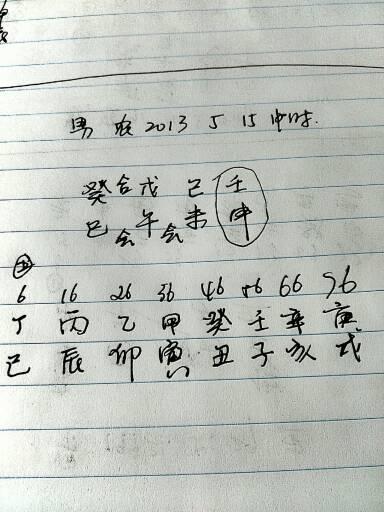 男 农 2013 5 15 申时.
癸合戊 己 壬
巳会午会未 申
6 16 26 36 46 56 66 76
丁 丙 乙 甲 癸 壬 辛 庚
巳 辰 卯 寅 丑 子 亥 戌